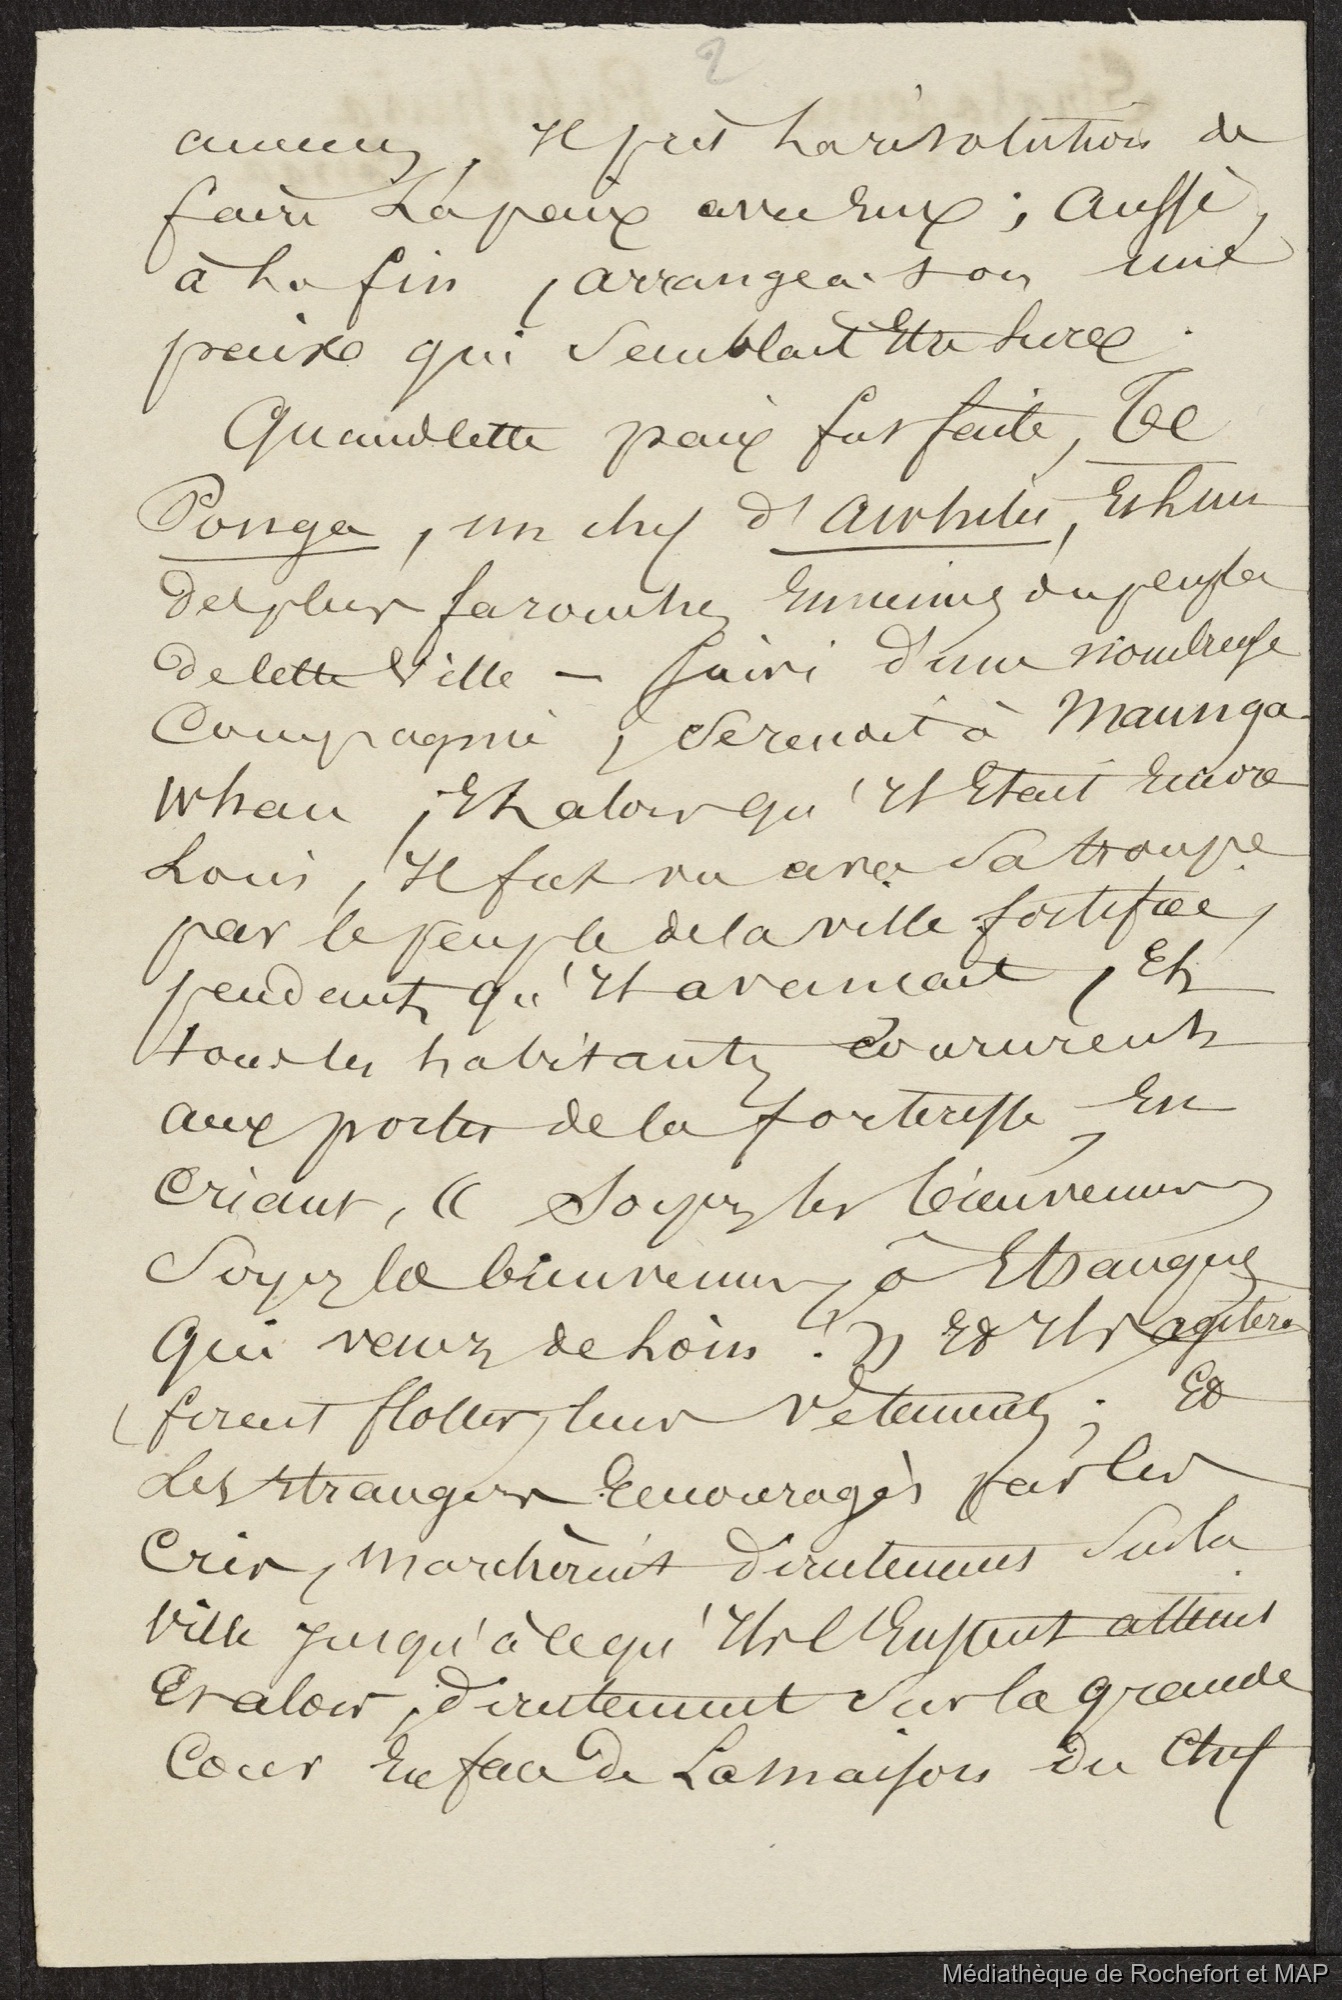 2
années, Il prit la résolution de
faire la paix avec Eux ; Aussi,
à la fin, arrangea-t-on une
paix qui semblait Etre sure.
Quand cette paix fut faite, Te
Ponga, un chef d'Awhitu, Et l'un
des plus farouches Ennemis du peuple
de cette Ville — suivi d'une nombreuse
Compagnie, se rendit à Maunga
whau, Et alors qu'Il Etait Encore
Loin, Il fut vu avec sa troupe
par le peuple de la ville fortifiée,
pendant qu'Il avançait, Et
tous les habitants coururent
aux portes de la forteresse, En
criant, « Soyez les bienvenus
Soyez les bienvenus, ô Etrangers
qui venez de Loin ! » Et Ils
firent flotter leurs Vêtements ; Et
Les Etrangers Encouragés par les
Cris, marchèrent directement sur la
Ville jusqu'à ce qu'Ils l'Eussent atteint
Et alors, directement sur la grande
Cour En face de La maison du Chef
Médiathèque de Rochefort et MAP